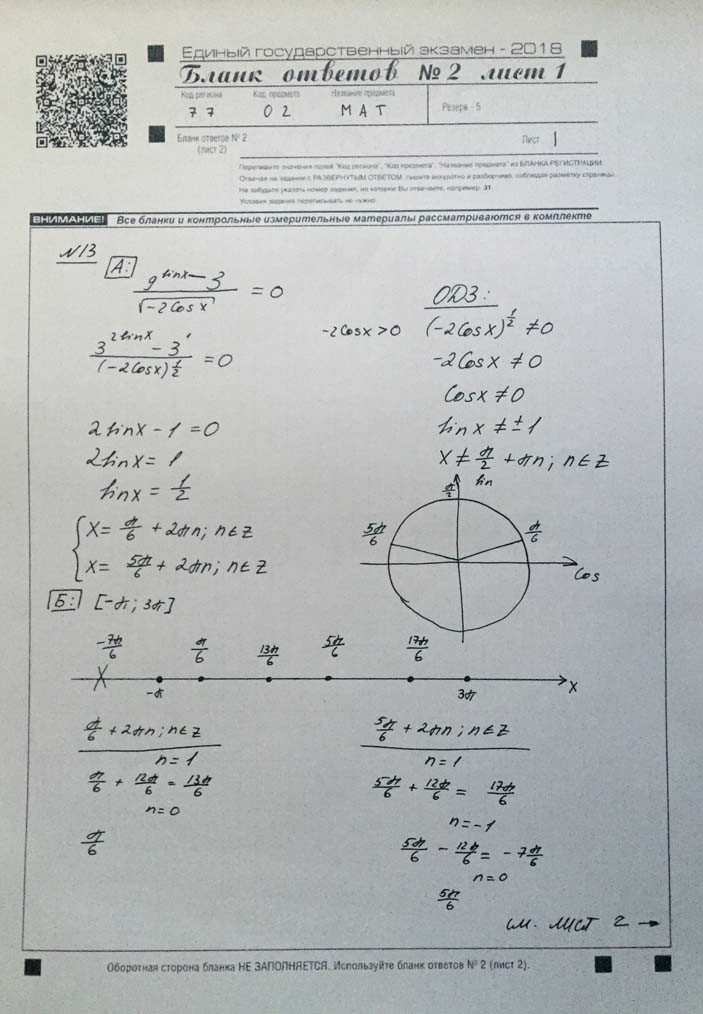 Единый государственный экзамен - 2018
Бланк ответов №2 лист 1
Код региона Код предмета Название предмета
Резерв - 5
77 02 МАТ
Бланк ответов № 2
(лист 2)
Лист 1
Перепишите значения полей "Код региона", "Код предмета", "Название предмета" из БЛАНКА РЕГИСТРАЦИИ.
Отвечая на задания с РАЗВЕРНУТЫМ ОТВЕТОМ, пишите аккуратно и разборчиво, соблюдая разметку страницы.
Не забудьте указать номер задания, на которое Вы отвечаете, например, 31.
Условия задания переписывать не нужно.
ВНИМАНИЕ! Все бланки и контрольные измерительные материалы рассматриваются в комплекте
№13
А:
(9^(sinx) - 3)/√(-2cosx) = 0
ОДЗ:
(3^(2sinx) - 3^1)/(-2cosx)^(1/2) = 0
-2cosx > 0 (-2cosx)^(1/2) ≠ 0
-2cosx ≠ 0
cosx ≠ 0
2sinx - 1 = 0
sinx ≠ ±1
2sinx = 1
x ≠ π/2 + πn; n∈Z
sinx = 1/2
π/2 sin
{ x = π/6 + 2πn; n∈Z
x = 5π/6 + 2πn; n∈Z
5π/6 π/6
cos
Б: [-π; 3π]
-7π/6 π/6 13π/6 5π/6 17π/6
-π 3π x
π/6 + 2πn; n∈Z
n=1
π/6 + 12π/6 = 13π/6
n=0
π/6
5π/6 + 2πn; n∈Z
n=1
5π/6 + 12π/6 = 17π/6
n=-1
5π/6 - 12π/6 = -7π/6
n=0
5π/6
см. лист 2 →
Оборотная сторона бланка НЕ ЗАПОЛНЯЕТСЯ. Используйте бланк ответов № 2 (лист 2).